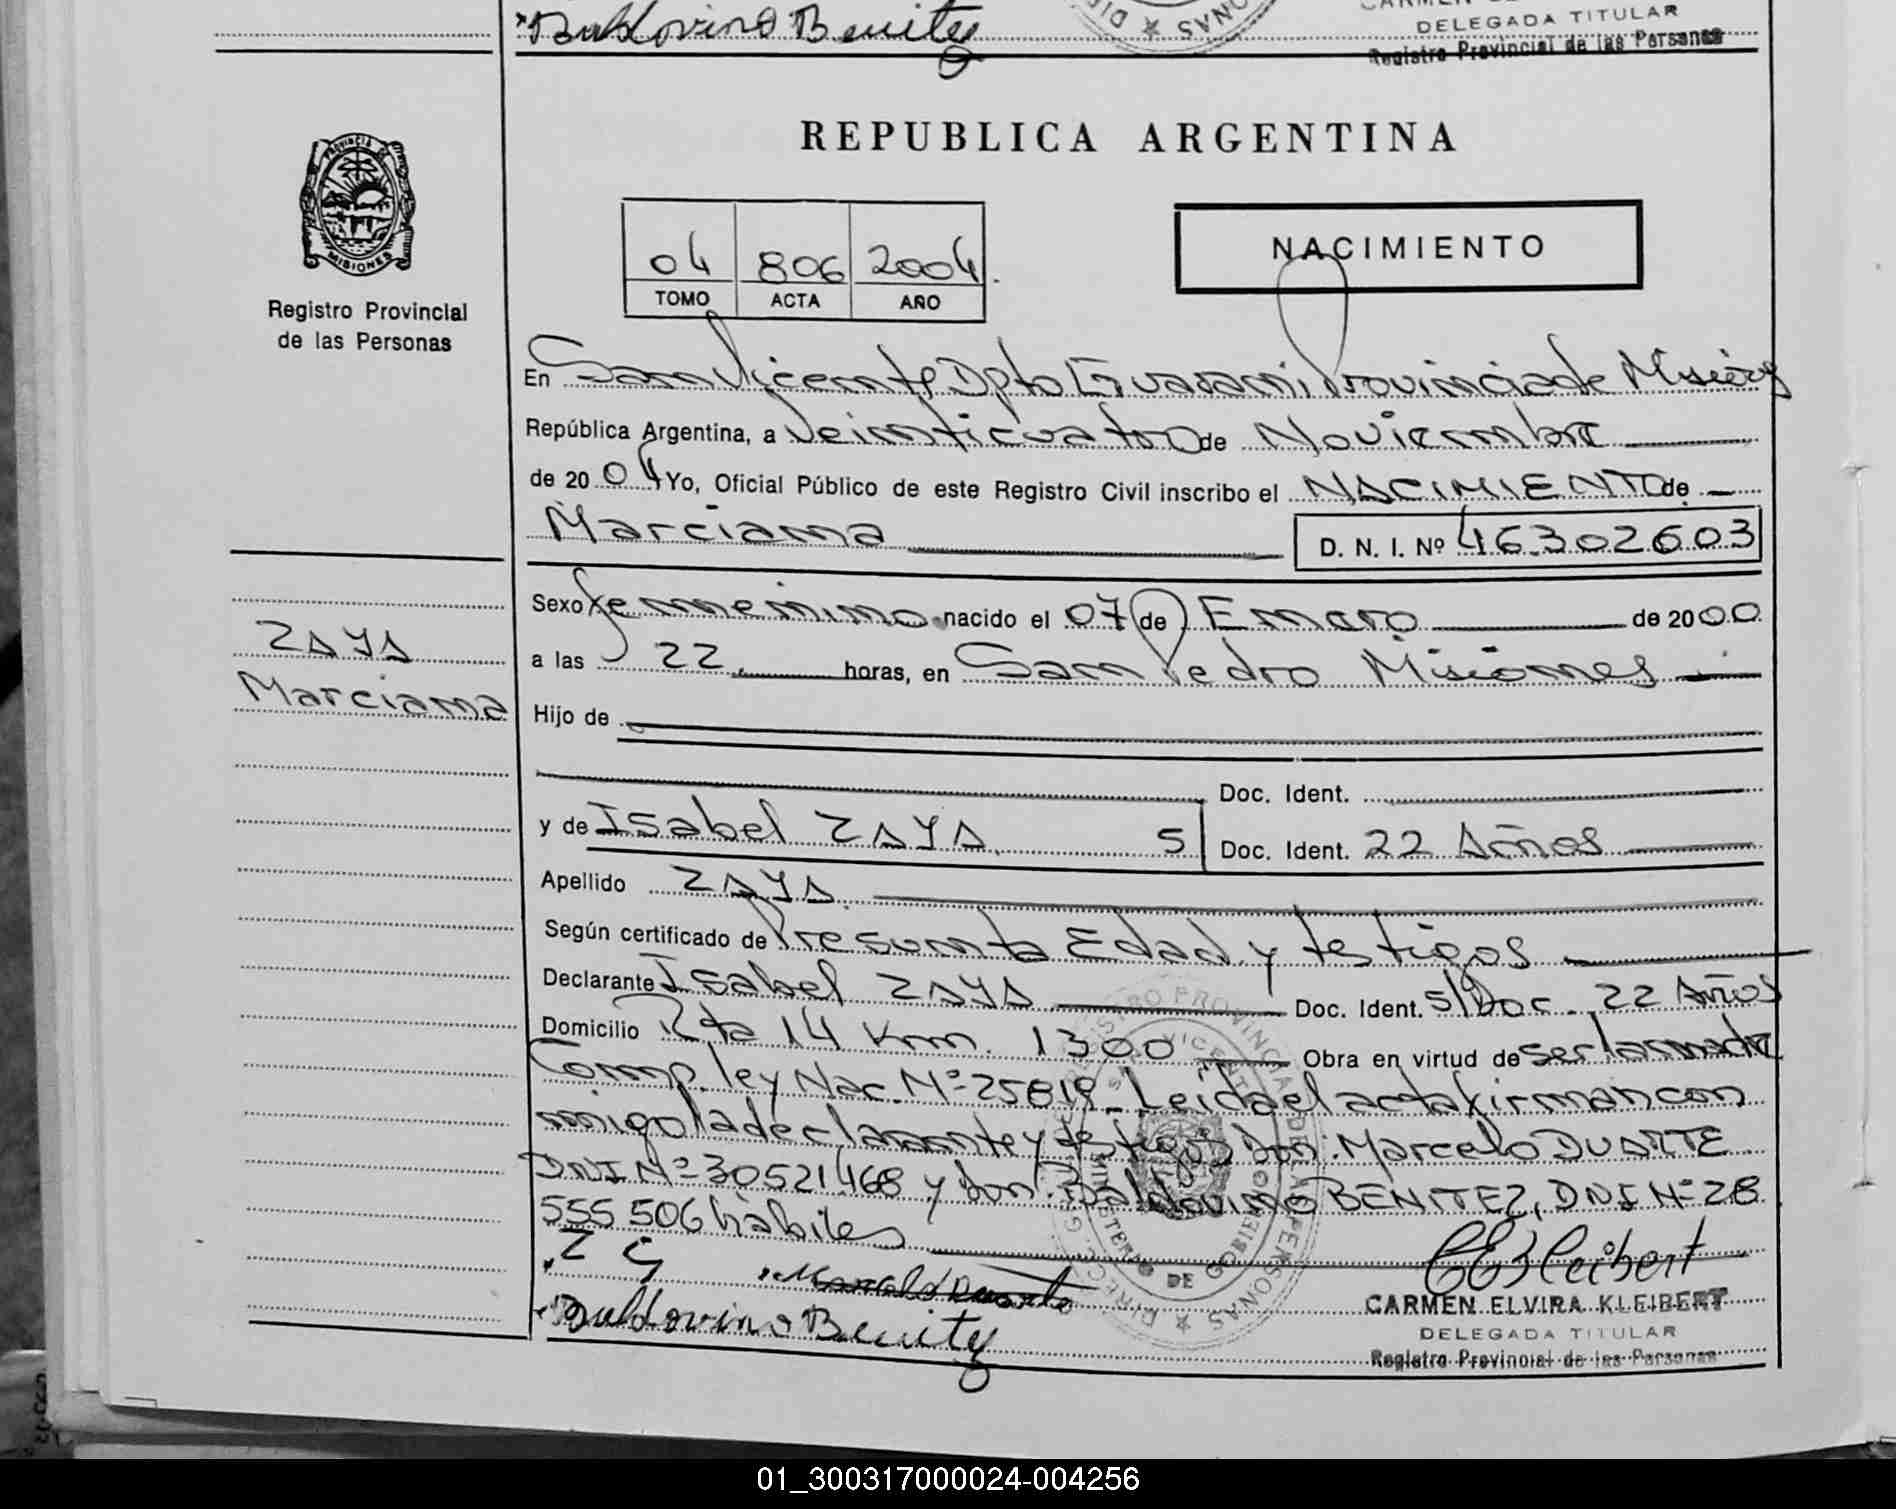 Baldovino Benitez
DELEGADA TITULAR
Registro Provincial de las Personas
PROVINCIA DE
MISIONES
Registro Provincial
de las Personas
REPUBLICA ARGENTINA
04 806 2004
TOMO ACTA AÑO
NACIMIENTO
En San Vicente Dpto Guarani, Provincia de Misiones
República Argentina, a Veinticuatro de Noviembre
de 20 04 Yo, Oficial Público de este Registro Civil inscribo el NACIMIENTO de
Marciana D. N. I. Nº 46.302.603
Sexo femenino nacido el 07 de Enero de 2000
ZAYA
a las 22 horas, en San Pedro Misiones
Marciana
Hijo de
Doc. Ident.
y de Isabel ZAYA. S Doc. Ident. 22 Años
Apellido ZAYA.
Según certificado de Presunta Edad y testigos
Declarante Isabel ZAYA Doc. Ident. S/Doc. 22 Años
Domicilio Rta 14 Km. 1300 Obra en virtud de ser la madre
Comp. ley Nac. Nº 25819_ Leída el acta firman con
migo la declarante y testigos Don: Marcelo DUARTE
DNI Nº 30521468 y don: Baldovino BENITEZ, DNI Nº 28
555 506 hábiles
Z
Duarte
Baldovino Benitez
CARMEN ELVIRA KLEIBERT
DELEGADA TITULAR
Registro Provincial de las Personas
01_300317000024-004256